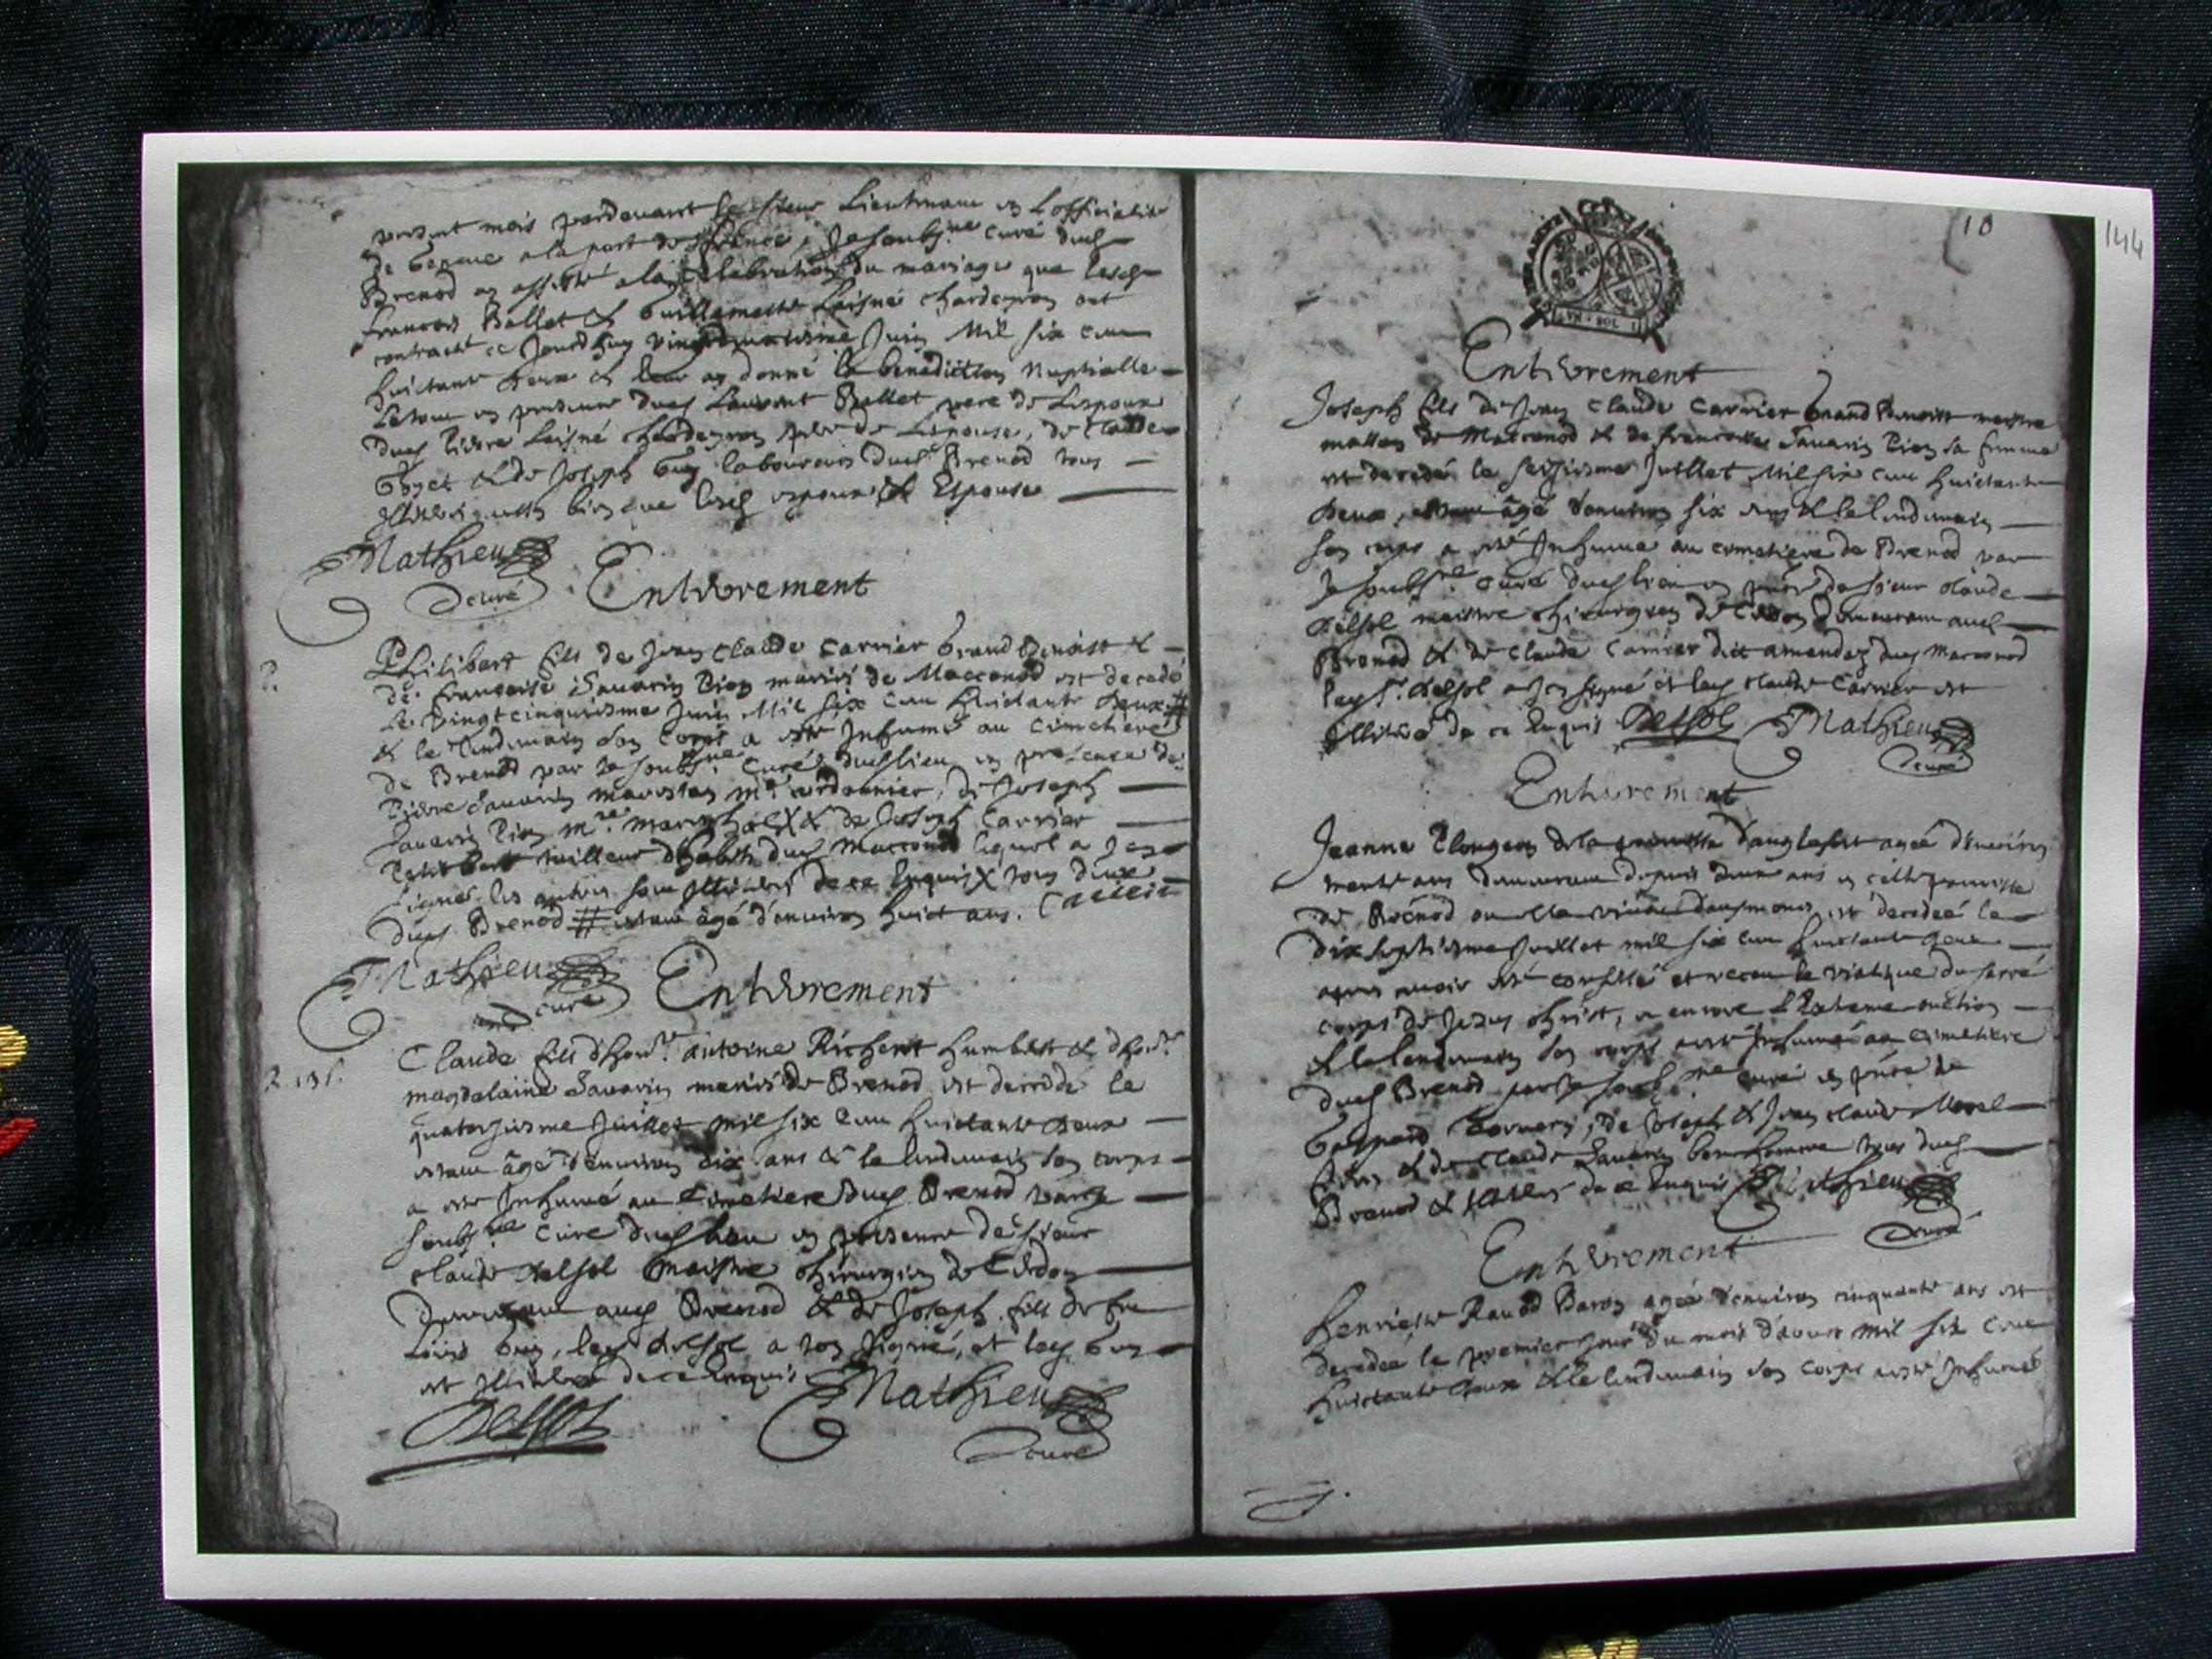 present mois pardevant le sieur Lieutenant en Lofficialité
de Geneve a la part de France, Je soubsne curé dud
Brenod ay assisté a la celebration du mariage que lesd
francois Ballet & Guillemette Laisné chardeyron ont
contracté ce Jourdhuy vingtquatriesme Juin Mil six cent
huictante deux & leur ay donné la benediction Nuptialle
le tout en presence dud Laurent Ballet pere de Lespoux
dud Pierre Laisné chardeyron pere de Lespouse, de Claude
& de Joseph Guy laboureurs dud Brenod tous
Illiterés aussy bien que lesd espoux & Espouse
Mathieu
curé
Enterrement
Philibert fils de Jean Claude Carrier Grand Benoist &
de francoise Savarin Pion mariés de Macconod est decedé
le vingtcinquiesme Juin Mil six cent huictante deux #
& le lendemain son corps a esté Inhumé au cimetiere
de Brenod par Je soubsne curé dud lieu en presence de
Pierre Savarin me cordonnier, de Joseph
Savarin Pion me & de Joseph Carrier
tailleur d'habits dud Macconod lequel a
signé les autres sont Illiterés de ce Enquis X tous deux
dud Brenod # estant âgé d'environ huict ans. Carrier
Mathieu
curé
Enterrement
Claude fils d'hon. antoine Richent humbert & d'hon.
magdelaine Savarin mariés de Brenod est decedé le
quatorziesme Juillet mil six cent huictante deux
estant âgé d'environ dix ans & le lendemain son corps
a esté Inhumé au Cimetiere dud Brenod par Je
soubsne Curé dud lieu en presence de sieur
claude delsol maistre chirurgien de Cerdon
demeurant aud Brenod & de Joseph fils de feu
Louis Guy, led delsol a soy signé, et led Guy
est Illiteré de ce Enquis
Delsol
Mathieu
curé
10
144
Enterrement
Joseph fils de Jean Claude Carrier Grand Benoist maistre
masson de Macconod & de francoise Savarin Pion sa femme
est decedé le seiziesme Juillet Mil six cent huictante
deux, estant âgé d'environ six ans & le lendemain
son corps a esté Inhumé au cimetiere de Brenod par
Je soubsne curé dud lieu en pnce de sieur claude
delsol maistre chirurgien de Cerdon demeurant aud
Brenod & de Claude Carrier dict amendez dud Macconod
led sr. delsol a signé et led claude Carrier est
Illiteré de ce Enquis Delsol Mathieu
curé
Enterrement
Jeanne Plongeon de la parroisse agée d'environ
trente ans demeurant depuis deux ans en cette parroisse
de Brenod est decedeé le
dix septiesme Juillet mil six cent huictante deux
apres avoir esté confessé et receu le viatique du sacré
corps de Jezus christ, & encore l'Extreme onction
& le lendemain son corps a esté Inhumé au cimetiere
dud Brenod par Je soubsne curé en pnce de
Gaspard, de Joseph & Jean claude Morel
& de Claude Savarin bonhomme tous dud
Brenod & Illiterés de ce Enquis Mathieu
curé
Enterrement
henriette Ravod Baron agée d'environ cinquante ans est
decedeé le premier jour du mois d'aoust mil six cent
huictante deux & le lendemain son corps a esté Inhumé